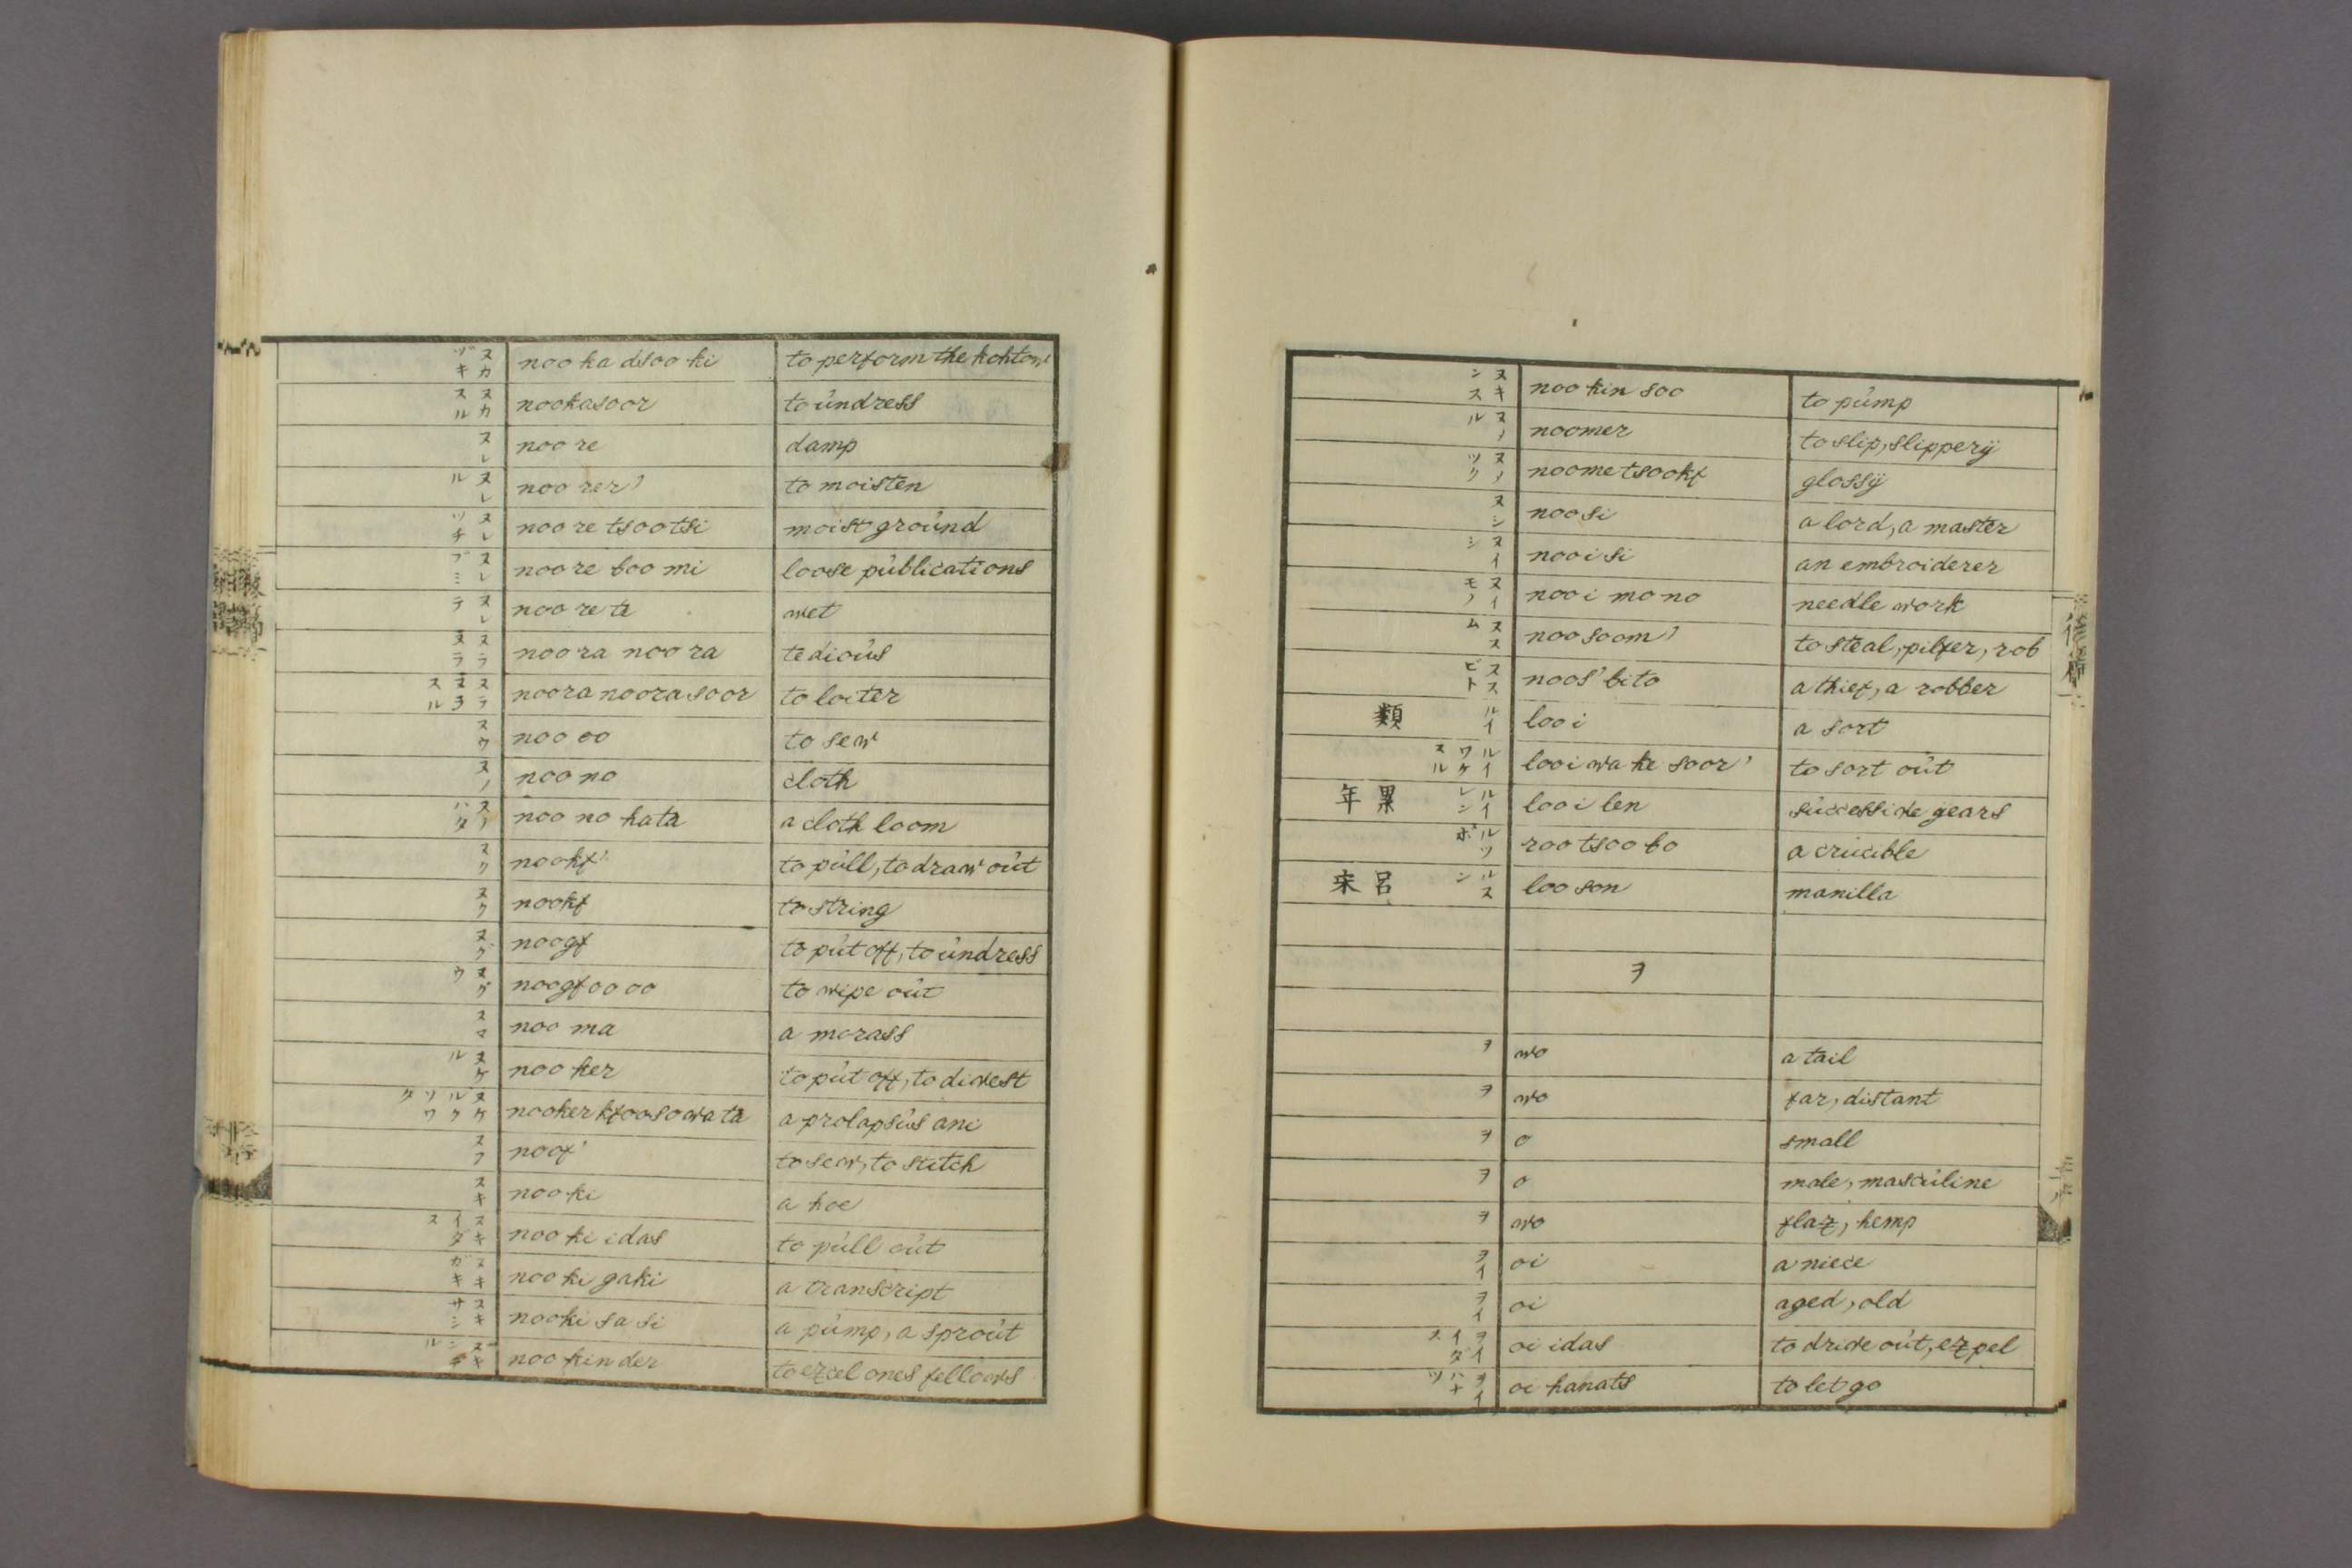 ヌカヅキ nooka dsooki to perform the kohtow
ヌカスル nookasoor to undress
ヌレ noo re damp
ヌレル noo rer' to moisten
ヌレツチ noo re tsootsi moist ground
ヌレブミ noo re boo mi loose publications
ヌレテ noo re te wet
ヌラヌラ noo ra noo ra tedious
ヌラヌラスル noora noora soor to loiter
ヌウ noo oo to sew
ヌノ noo no cloth
ヌノハタ noo no hata a cloth loom
ヌク nookf' to pull, to draw out
ヌク nookf to string
ヌグ noogf to put off, to undress
ヌグウ noogfoo oo to wipe out
ヌマ noo ma a morass
ヌケル noo ker to put off, to divest
ヌケルクソワタ nooker kfoosowa ta a prolapsus ani
ヌフ noof' to sew, to stitch
ヌキ noo ki a hoe
ヌキイダス noo ki idas to pull out
ヌキガキ noo ki gaki a transcript
ヌキサシ nooki sa si a pump, a sprout
ヌキンデル noo kin der to excel ones fellows
ヌキンス noo kin soo to pump
ヌメル noomer to slip, slippery
ヌメツク noome tsookf glossy
ヌシ noo si a lord, a master
ヌイシ nooi si an embroiderer
ヌイモノ nooi mo no needle work
ヌスム noo soom' to steal, pilfer, rob
ヌスビト noos' bito a thief, a robber
類 ルイ looi a sort
ルイワケスル looi wa ke soor' to sort out
年累 ルイレン looi len successive years
ルツボ roo tsoo bo a crucible
宋呂 ルスン loo son manilla
ヲ
ヲ wo a tail
ヲ wo far, distant
ヲ o small
ヲ o male, masculine
ヲ wo flax, hemp
ヲイ oi a niece
ヲイ oi aged, old
ヲイイダス oi idas to drive out, expel
ヲイハナツ oi hanats to let go